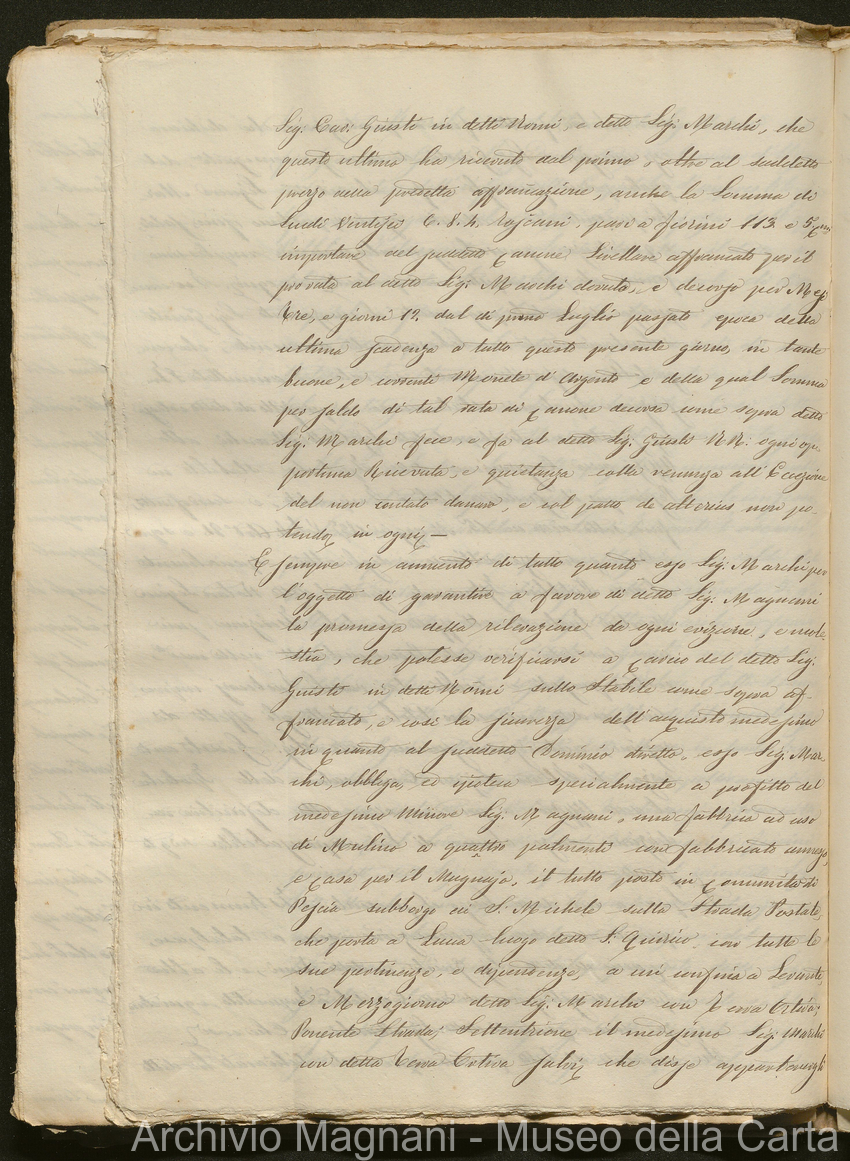 Sig: Cav: Giusti in detti Nomi, e detto Sig: Marchi, che
questo ultimo ha ricevuto dal primo, oltre al suddetto
prezzo della predetta affrancazione, anche la Somma di
Scudi Ventisei 6. 8. 4. Toscani, pari a fiorini 113 e 5
importare del suddetto Canone Livellare affrancato per il
pro rata al detto Sig: Marchi dovuto, e decorso per Mesi
Tre, e giorni 12. dal dì primo Luglio passato epoca della
ultima scadenza a tutto questo presente giorno, in tante
buone, e correnti Monete d'Argento e della qual Somma
per saldo di tal rata di Canone decorsa come sopra detto
Sig: Marchi fece, e fa al detto Sig: Giusti NN: ogni op-
portuna Ricevuta, e quietanza colla renunzia all'Eccezione
del non contato danaro, e col patto de ulterius non pe-
tendo in ogni —
E sempre in aumento di tutto quanto esso Sig: Marchi per
l'oggetto di garantire a favore di detto Sig: Magnani
la promessa della rilevazione da ogni evizione, e mole-
stia, che potesse verificarsi a Carico del detto Sig:
Giusti in detti Nomi sullo Stabile come sopra af-
francato, e così la sicurezza dell'acquisto medesimo
in quanto al suddetto Dominio diretto, esso Sig: Mar-
chi, obbliga, ed ipoteca specialmente a profitto del
medesimo Minore Sig: Magnani, una fabbrica ad uso
di Mulino a quattro palmenti con fabbricato annesso,
e Casa per il Mugnajo, il tutto posto in Comunità di
Pescia subborgo di S. Michele sulla Strada Postale,
che porta a Lucca luogo detto S. Quirico con tutte le
sue pertinenze, e dipendenze, a cui confina a Levante,
e Mezzogiorno detto Sig: Marchi con Terra Ortiva;
Ponente Strada; Settentrione il medesimo Sig: Marchi
con detta Terra Ortiva salvi che disse appartenergli
Archivio Magnani - Museo della Carta